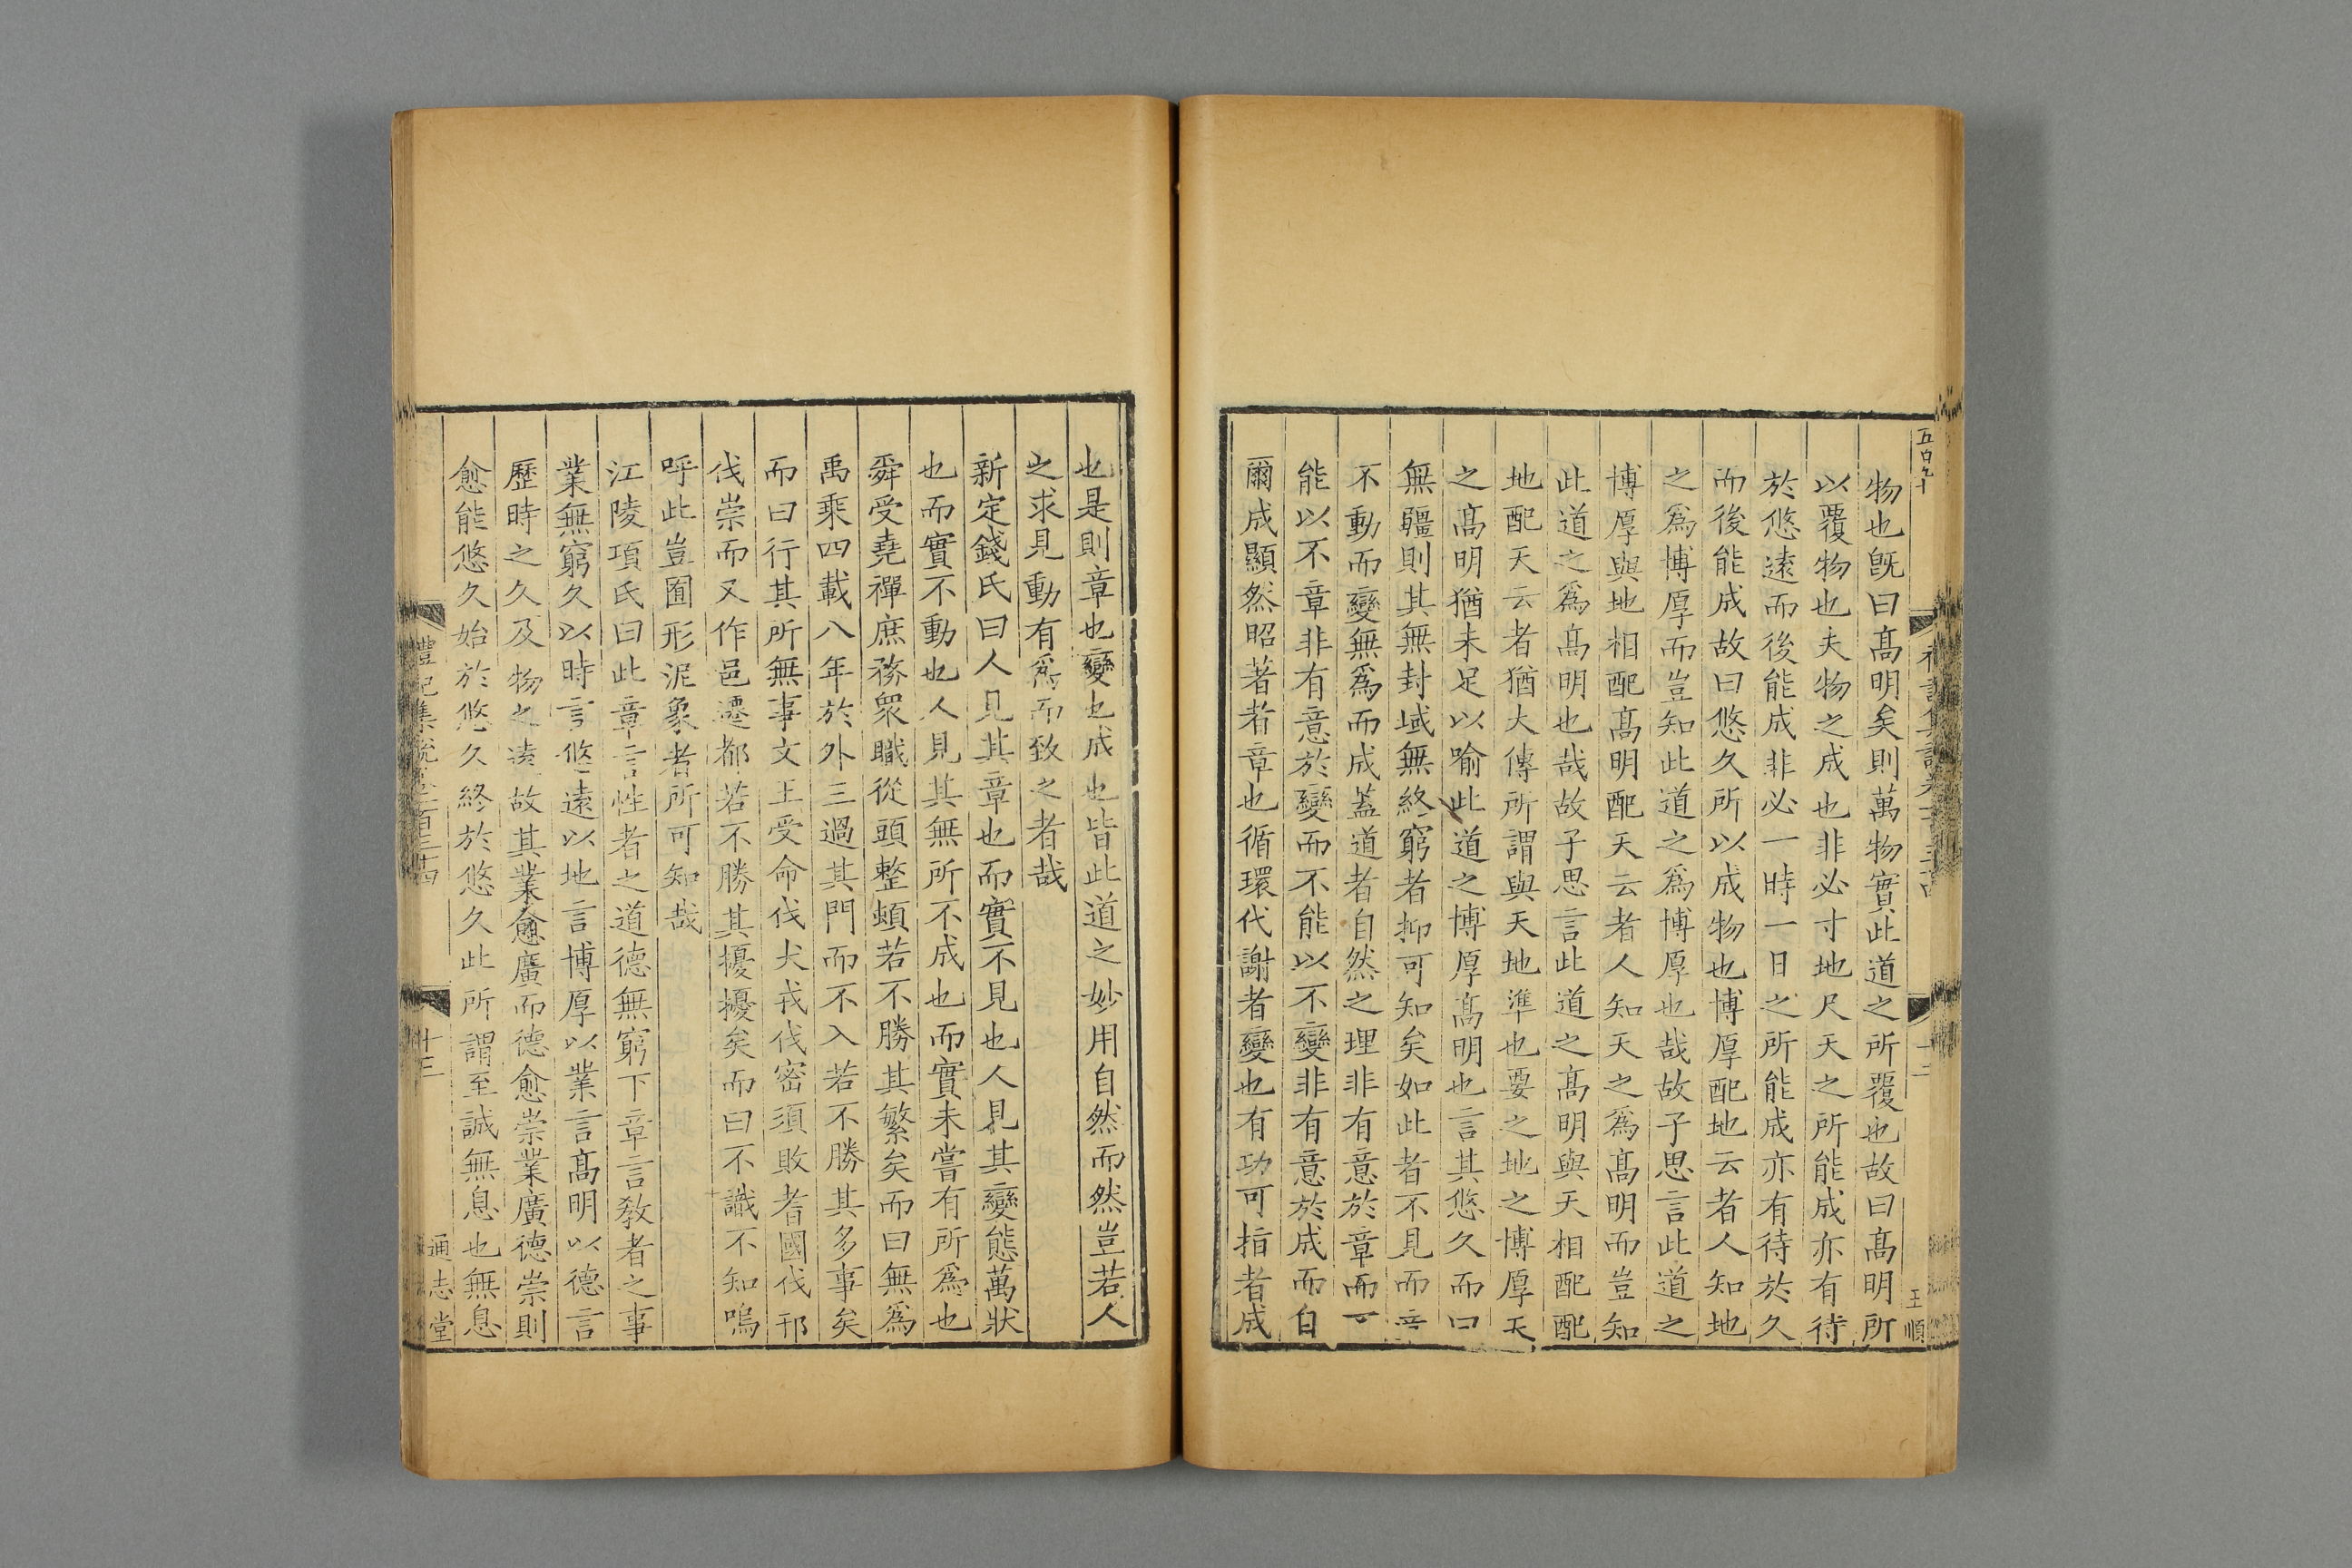 物也旣曰髙明矣則萬物實此道之所覆也故曰髙明所
以覆物也夫物之成也非必寸地尺天之所能成亦有待
於悠遠而後能成非必一時一日之所能成亦有待於久
而後能成故曰悠久所以成物也博厚配地云者人知地
之爲博厚而豈知此道之爲博厚也哉故子思言此道之
博厚與地相配髙明配天云者人知天之爲髙明而豈知
此道之爲髙明也哉故子思言此道之髙明與天相配配
地配天云者猶大傳所謂與天地準也要之地之博厚天
之髙明猶未足以喻此道之博厚髙明也言其悠久而曰
無疆則其無封域無終窮者抑可知矣如此者不見而章
不動而變無爲而成蓋道者自然之理非有意於章而
能以不章非有意於變而不能以不變非有意於成而自
爾成顯然昭著者章也循環代謝者變也有功可指者成
也是則章也變也成也皆此道之妙用自然而然豈若人
之求見動有爲而致之者哉
新定錢氏曰人見其章也而實不見也人見其變態萬狀
也而實不動也人見其無所不成也而實未嘗有所爲也
舜受堯禪庶務衆職從頭整頓若不勝其繁矣而曰無爲
禹乘四載八年於外三過其門而不入若不勝其多事矣
而曰行其所無事文王受命伐犬戎伐密須敗耆國伐邘
伐崇而又作邑遷都若不勝其擾擾矣而曰不識不知嗚
呼此豈囿形泥象者所可知哉
江陵項氏曰此章言性者之道德無窮下章言敎者之事
業無窮久以時言悠遠以地言博厚以業言髙明以德言
歷時之久及物之遠故其業愈廣而德愈崇業廣德崇則
愈能悠久始於悠久終於悠久此所謂至誠無息也無息
禮記集說卷一百三十四
十三
通志堂
五百九十
十三
王順